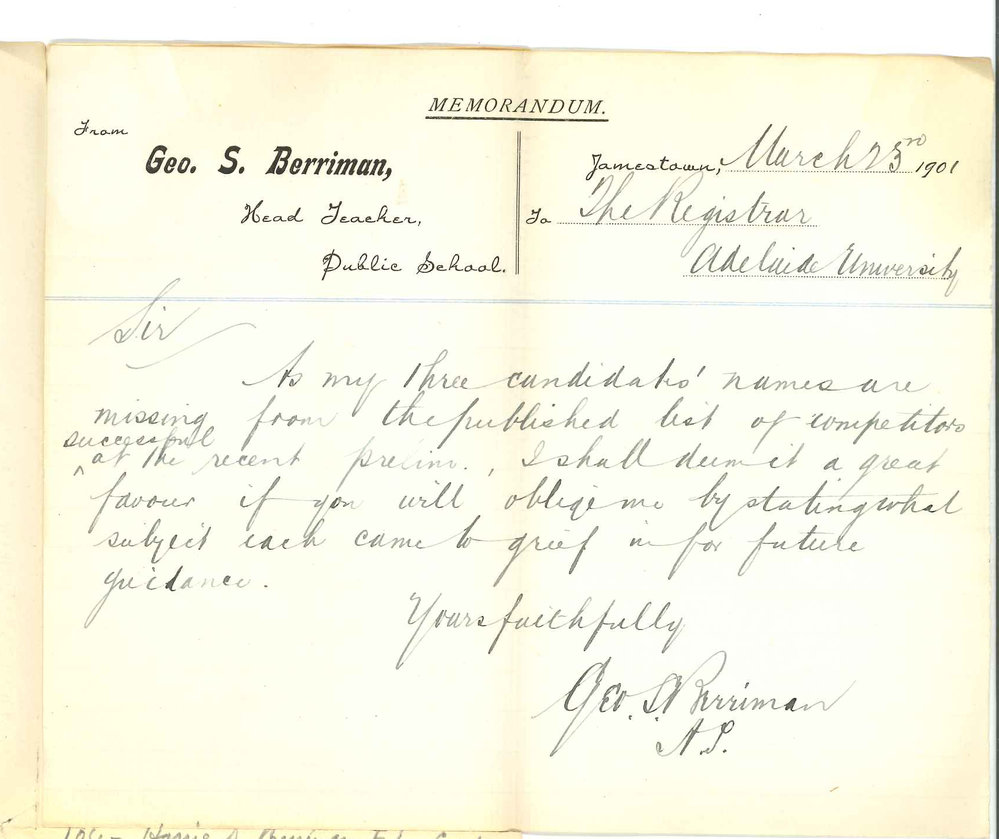 MEMORANDUM.
From
Geo. S. Berriman,
Head Teacher,
Public School.
Jamestown, March 23rd 1901
To The Registrar
Adelaide University
Sir
As my three candidates' names are
missing from the published list of competitors
successful
^ at the recent prelim., I shall deem it a great
favour if you will oblige me by stating what
subject each came to grief in for future
guidance.
Yours faithfully
Geo. S. Berriman